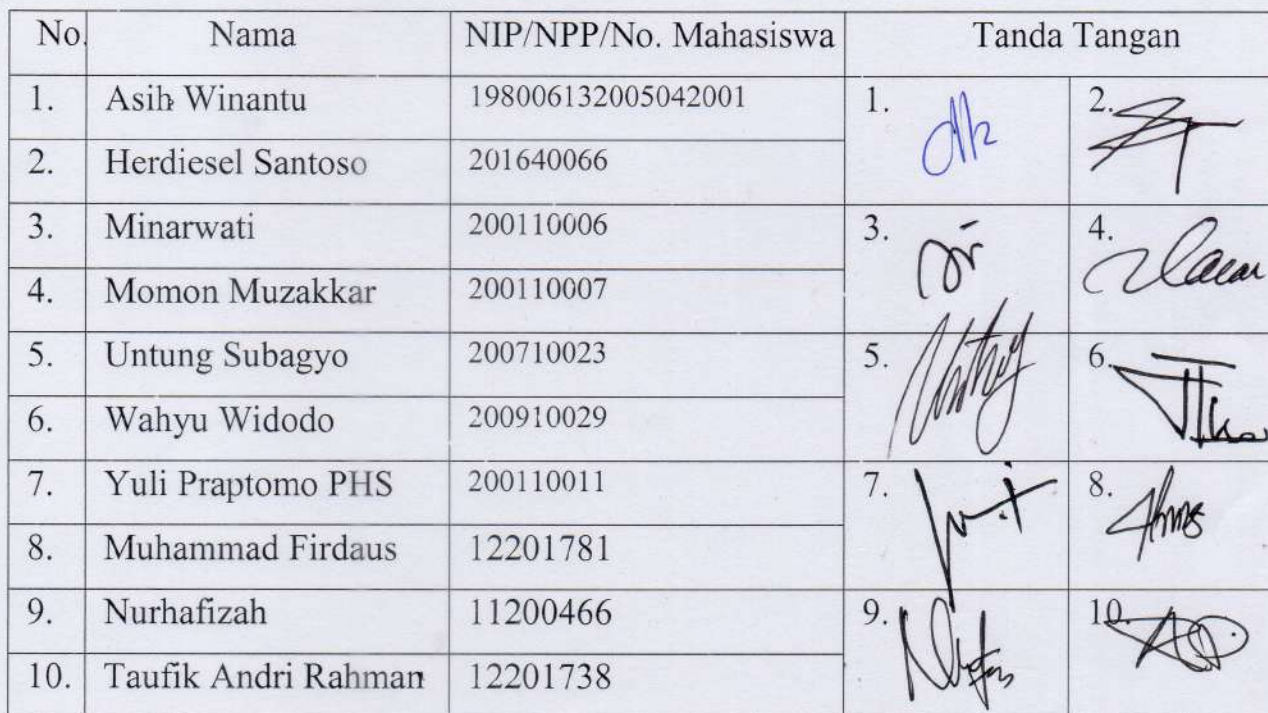 No. Nama NIP/NPP/No. Mahasiswa Tanda Tangan
1. Asih Winantu 198006132005042001 1. 2.
2. Herdiesel Santoso 201640066
3. Minarwati 200110006 3. 4.
4. Momon Muzakkar 200110007
5. Untung Subagyo 200710023 5. 6.
6. Wahyu Widodo 200910029
7. Yuli Praptomo PHS 200110011 7. 8.
8. Muhammad Firdaus 12201781
9. Nurhafizah 11200466 9. 10.
10. Taufik Andri Rahman 12201738